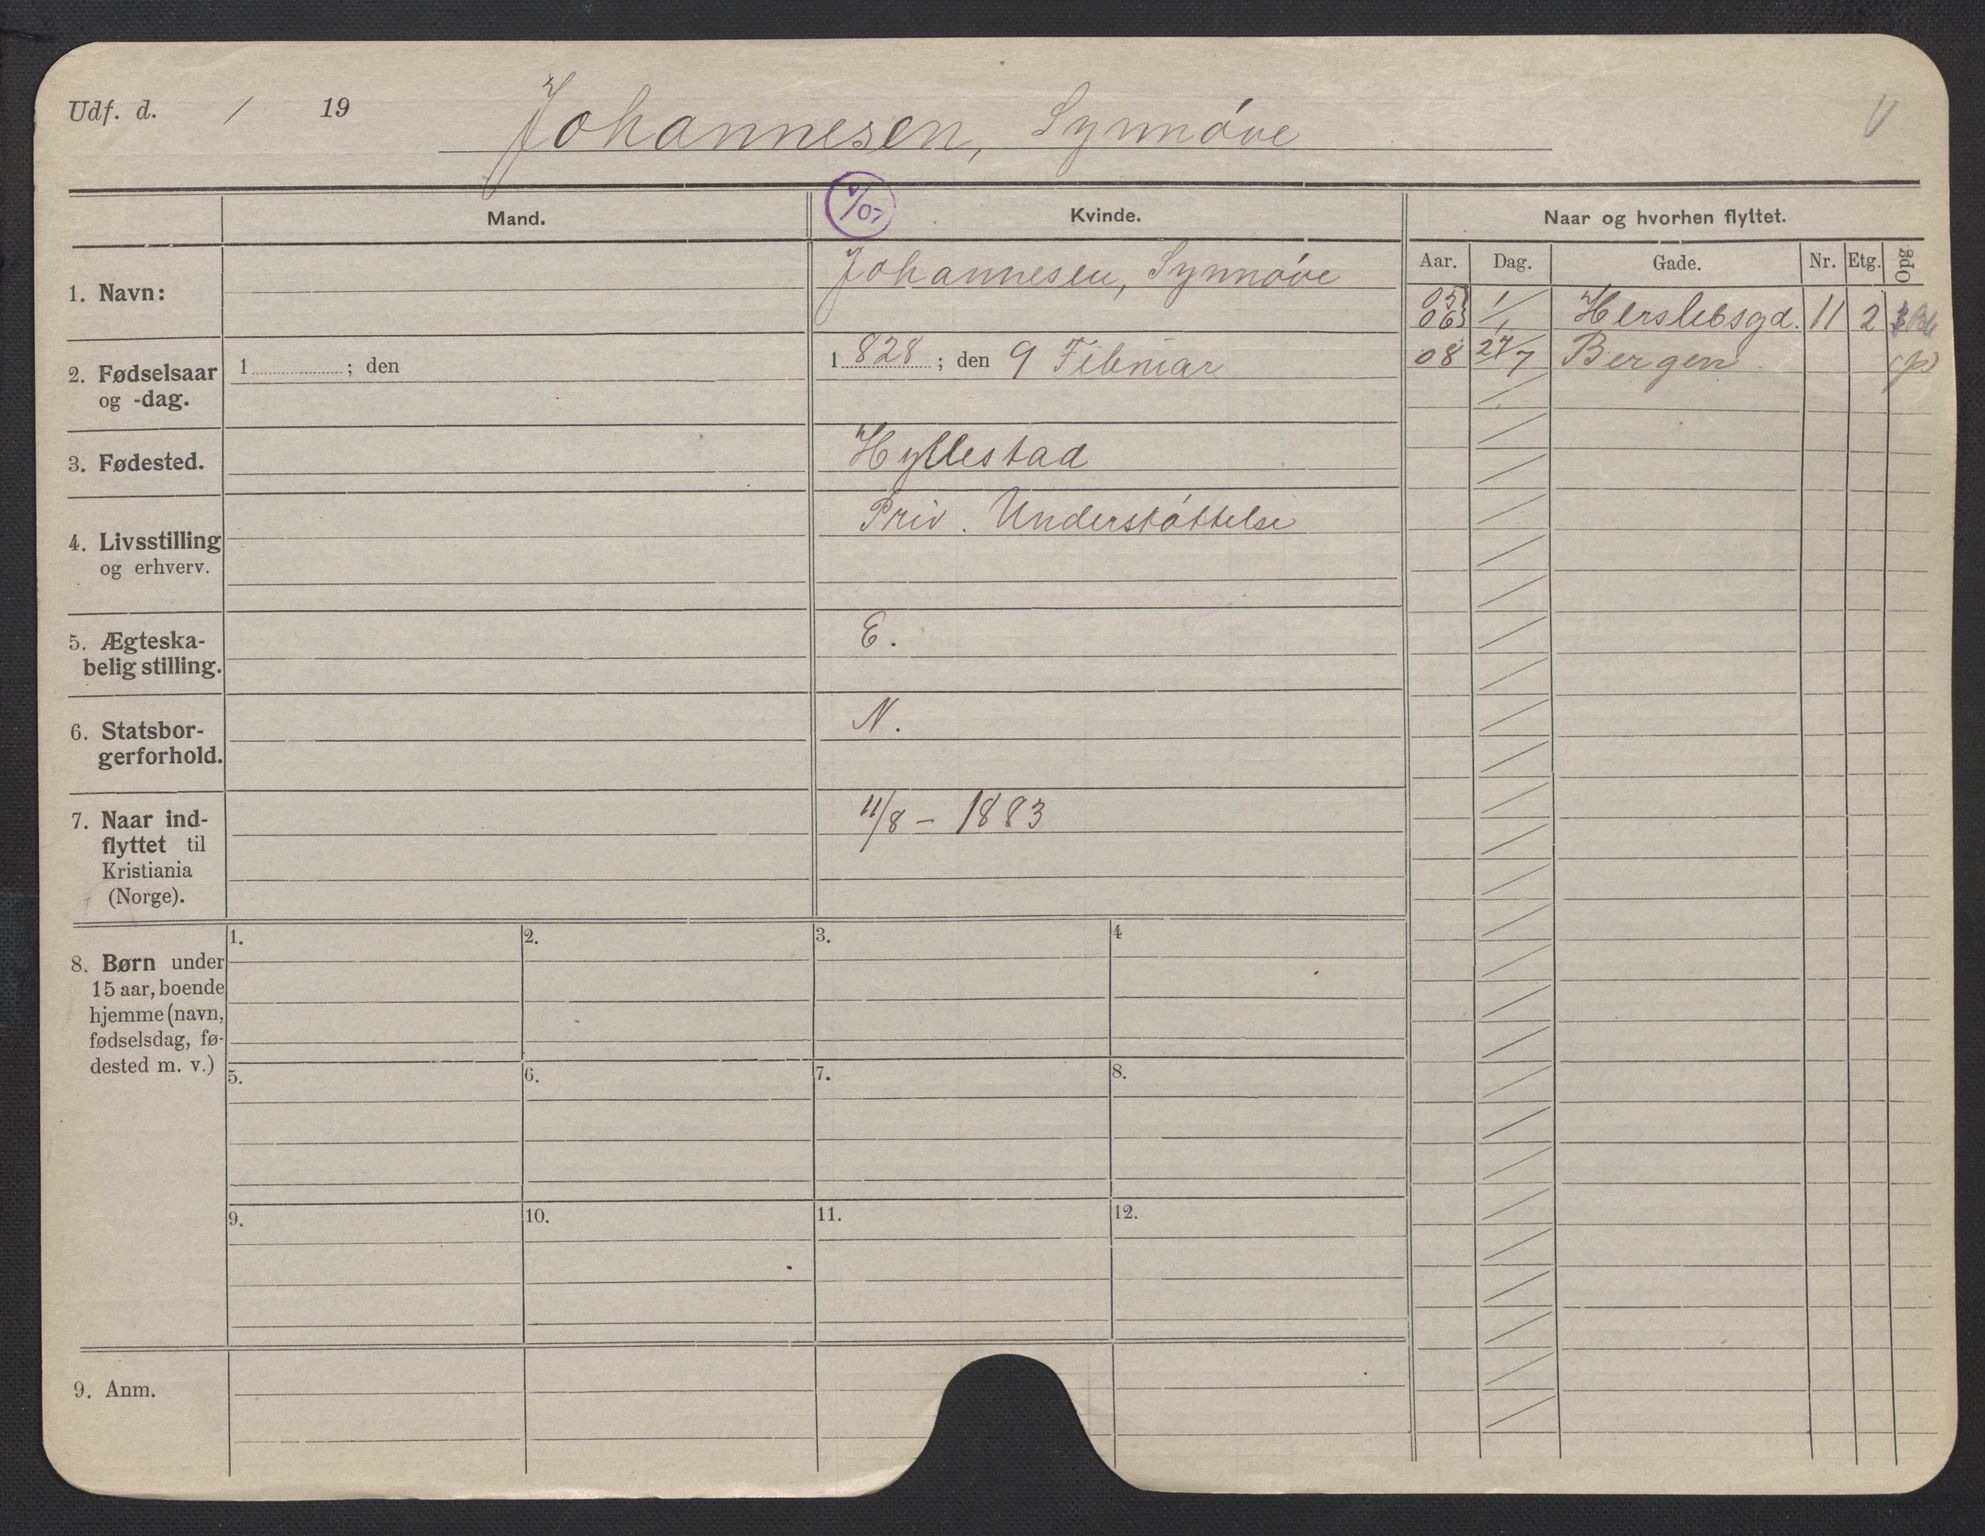 Udf. d. / 19
Johannesen, Synnøve
V
Mand.
V/07
Kvinde.
Naar og hvorhen flyttet.
Aar. Dag. Gade. Nr. Etg. Opg
1. Navn:
Johannesen, Synnøve
05 1/
06 1/1 Herslebsgd. 11 2
08 27/7 Bergen
2. Fødselsaar
og -dag.
1 ; den
1 828 ; den 9 Februar
3. Fødested.
Hyllestad
4. Livsstilling
og erhverv.
Priv. Understøttelse
5. Ægteska-
belig stilling.
E.
6. Statsbor-
gerforhold.
N.
7. Naar ind-
flyttet til
Kristiania
(Norge).
11/8 - 1883
8. Børn under
15 aar, boende
hjemme (navn,
fødselsdag, fø-
dested m. v.)
1. 2. 3. 4
5. 6. 7. 8.
9. 10. 11. 12.
9. Anm.